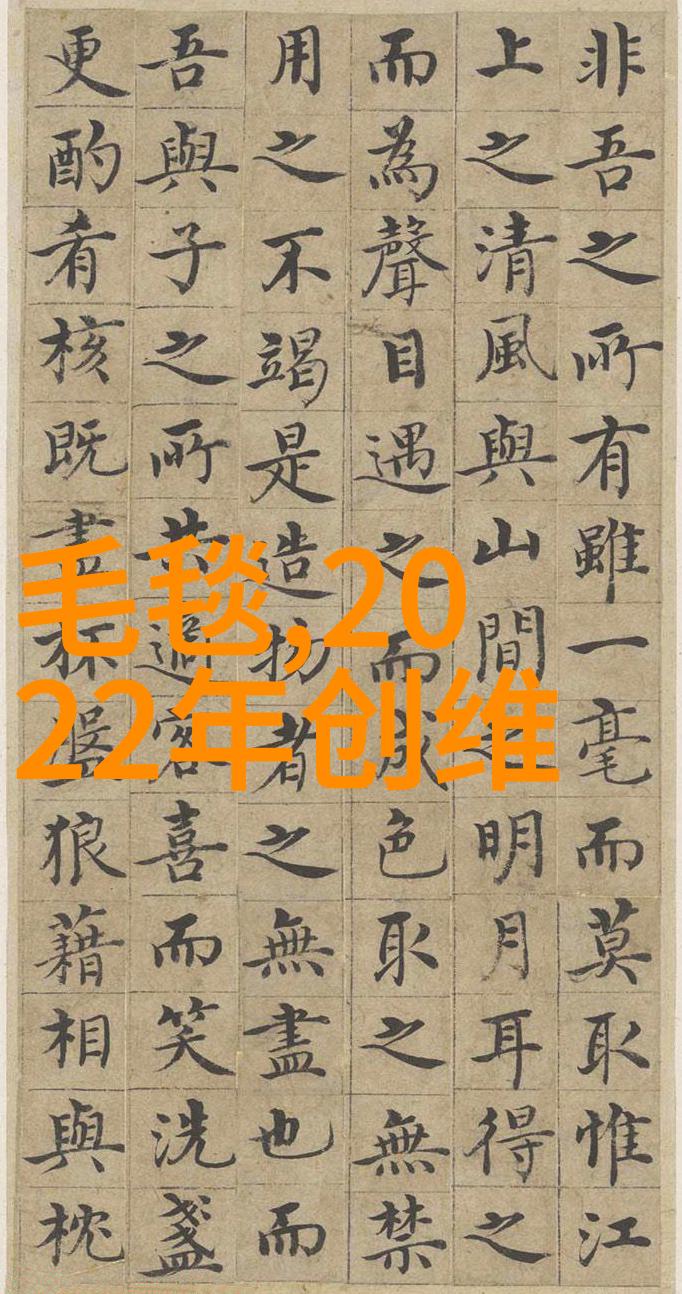 非吾之所有雖一毫而莫取惟江
上之清風與山間之明月耳得之
而為聲目遇之而成色取之無禁
用之不竭是造物者之無盡也而
吾與子之所共適客喜而笑洗盞
更酌肴核既盡杯盤狼藉相與枕
毛毯,20
22年创维